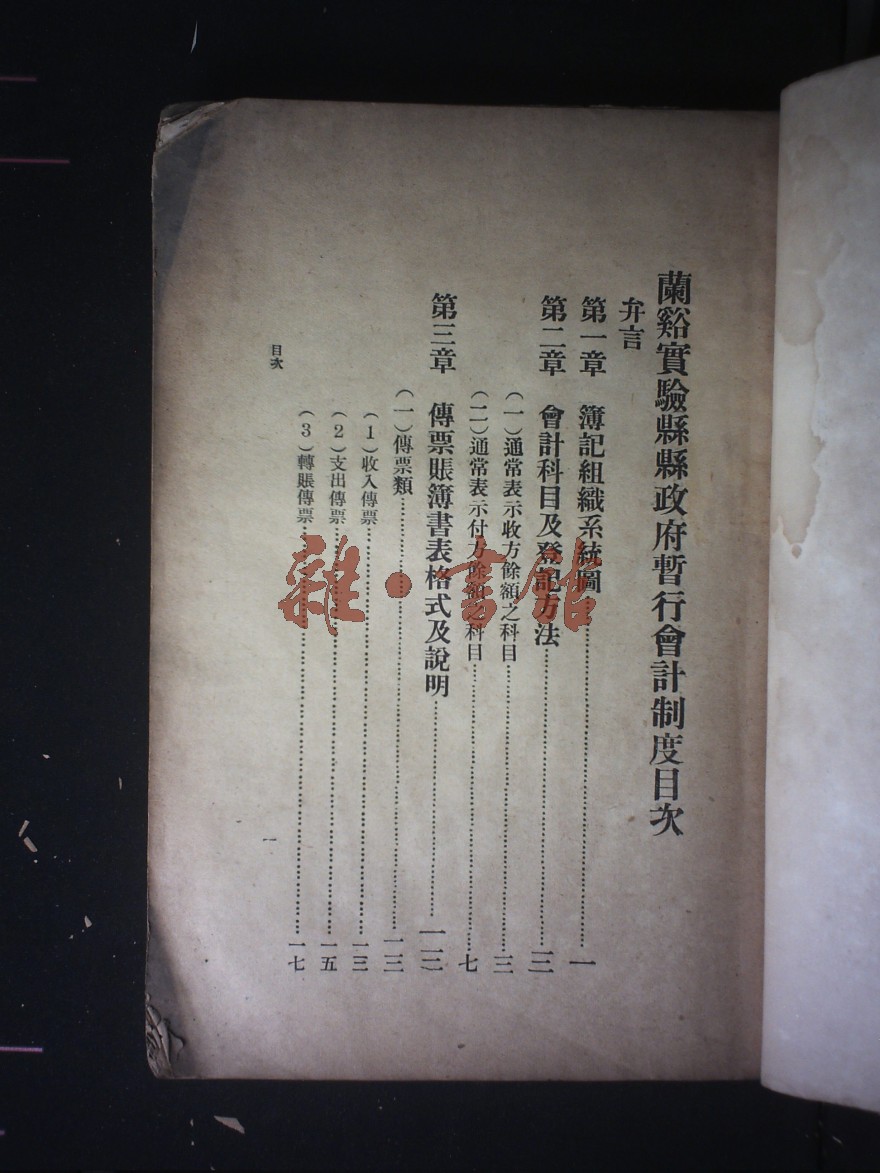 蘭谿實驗縣縣政府暫行會計制度目次
弁言
第一章　簿記組織系統圖……一
第二章　會計科目及登記方法……三
（一）通常表示收方餘額之科目……三
（二）通常表示付方餘額之科目……七
第三章　傳票賬簿書表格式及說明……一三
（一）傳票類……一三
（1）收入傳票……一三
（2）支出傳票……一五
（3）轉賬傳票……一七
目次
一
雜·書館